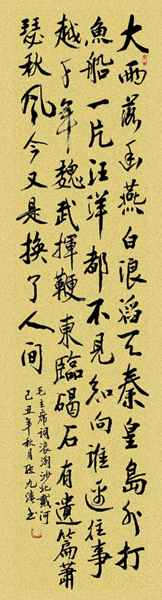 大雨落幽燕白浪滔天秦皇島外打
魚船一片汪洋都不見知向誰邊往事
越千年魏武揮鞭東臨碣石有遺篇蕭
瑟秋風今又是換了人間
毛主席詞浪淘沙北戴河
己丑年秋月